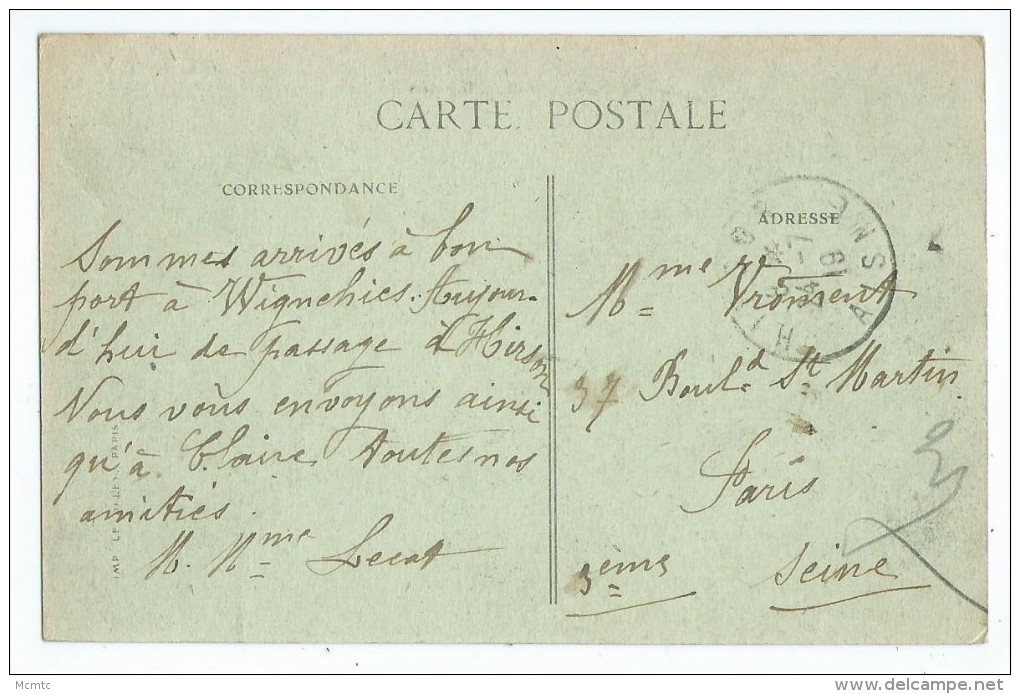 CARTE POSTALE
CORRESPONDANCE
Sommes arrivés à bon
port à Wignehies. Aujour-
d'hui de passage à Hirson
Nous vous envoyons ainsi
qu'à Claire toutes nos
amitiés.
M. Mme Lecat
ADRESSE
Mme Vroment
37 Bould St Martin
Paris
3ème Seine
AISNE
Mcmtc